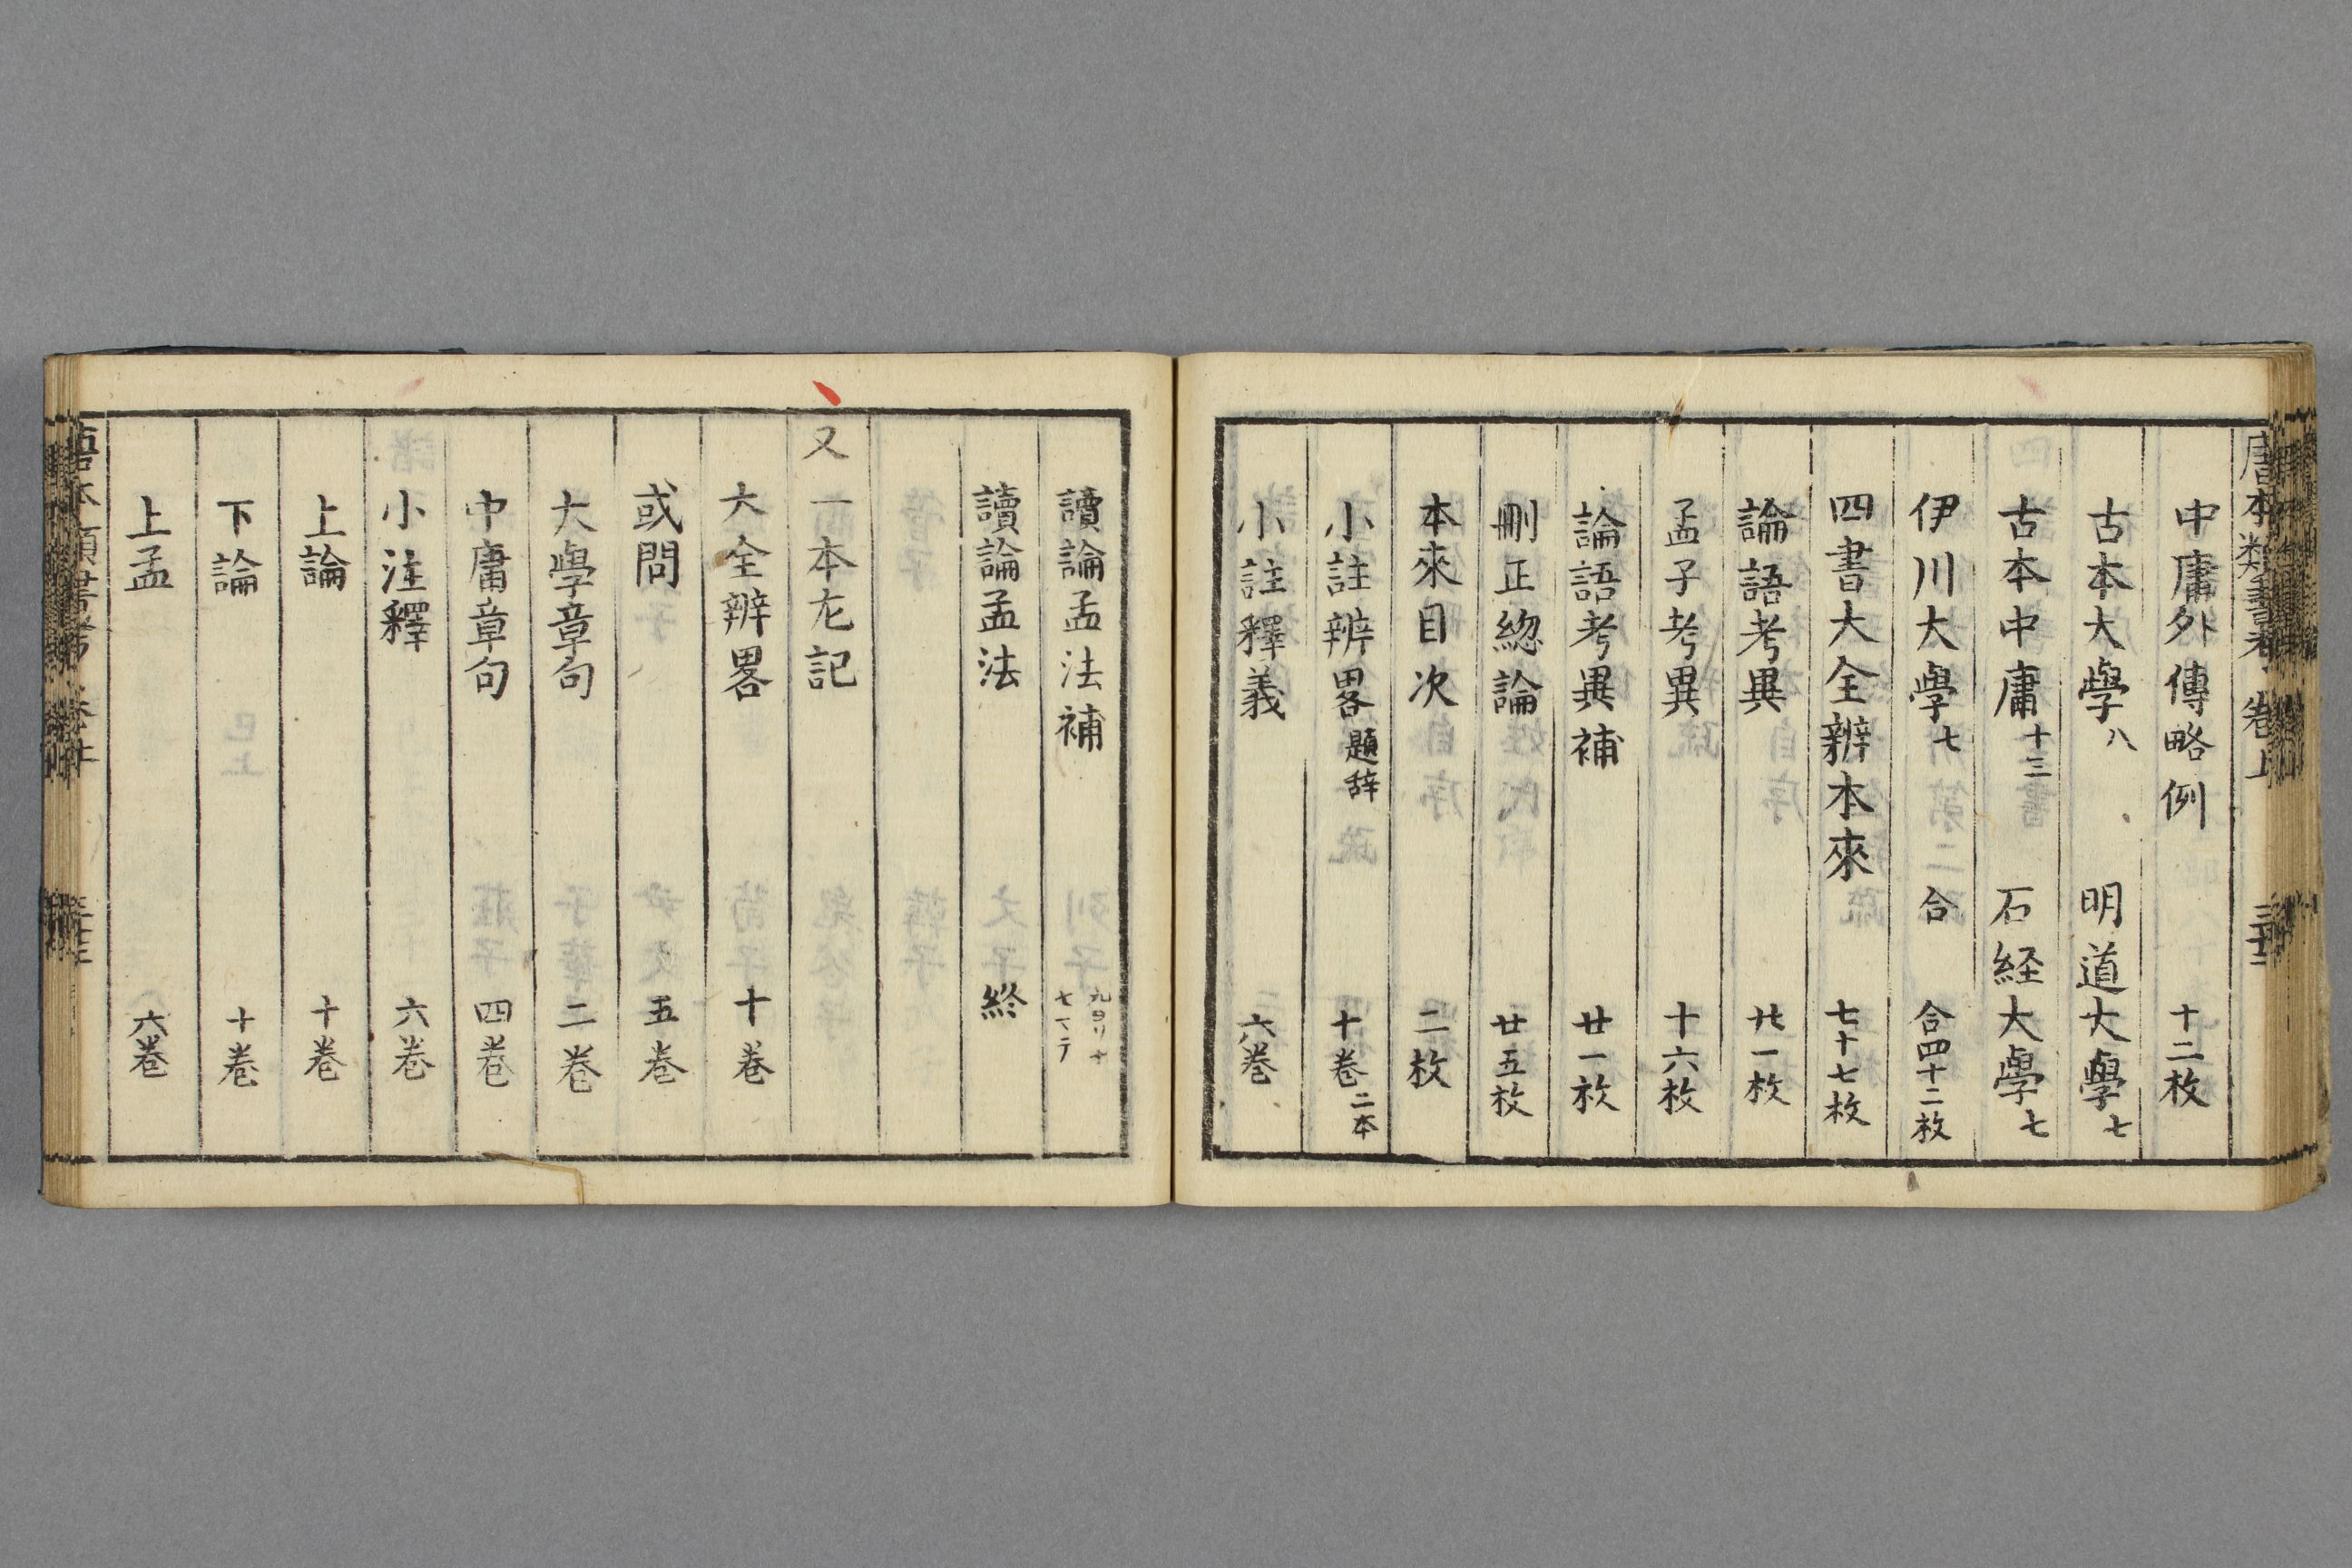 唐本類書考 卷上
中庸外傳略例 十二枚
古本大學八 明道大學七
古本中庸十三 石経大學七
伊川大學七 合 合四十二枚
四書大全辨本來 七十七枚
論語考異 廿一枚
孟子考異 十六枚
論語考異補 廿一枚
刪正總論 廿五枚
本來目次 二枚
小註辨畧題辞 十卷二本
小註釋義 六卷
讀論孟法補 九ヨリ十七マテ
讀論孟法 終
又一本左記
大全辨畧 十卷
或問 五卷
大學章句 二卷
中庸章句 四卷
小注釋 六卷
上論 十卷
下論 十卷
上孟 六卷